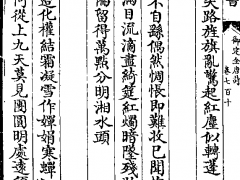 御定全唐詩
卷七百十
失路旌旗亂驚起紅塵似轉蓬
不自繇偶然惆悵即難收已聞
滿目流滴盡綺筵紅燭暗墜殘
陽留得萬點分明湘水頭
造化權結霜凝雪作嬋娟寒蟬
何從上九天莫見團圓明處遠